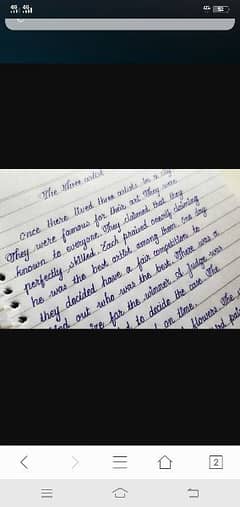 The three artist
Once there lived three artists in a city
They were famous for their art. They were
known to everyone. They claimed that they
perfectly skilled. Each praised claiming
he was the best artist among them. One day
they decided have a fair competition to
out who was the best. There was a
for the winner. A judge was
to decide the case. The
on time.
flowers. The
2